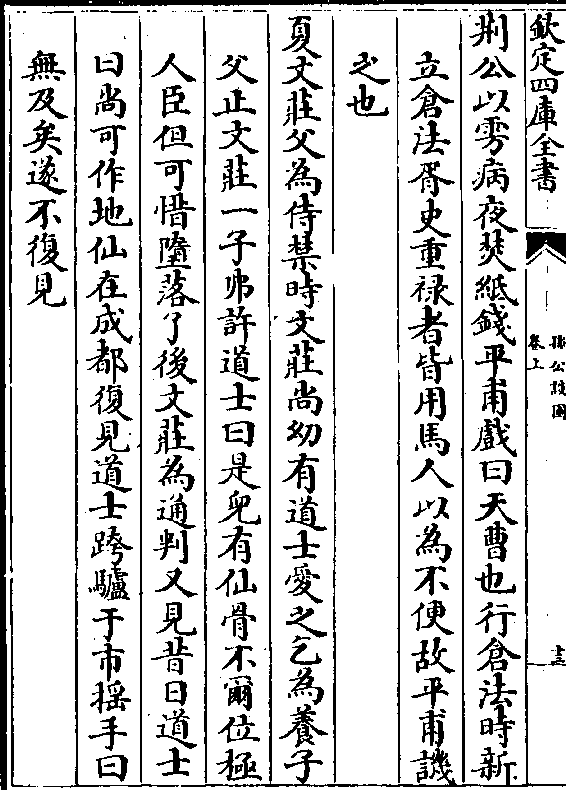 欽定四庫全書
孫公談圃
卷上
十三
荆公以雱病夜焚紙錢平甫戲曰天曹也行倉法時新
立倉法胥史重禄者皆用馬人以為不便故平甫譏
之也
夏文莊父為侍禁時文莊尚幼有道士愛之乞為養子
父止文莊一子弗許道士曰是兒有仙骨不爾位極
人臣但可惜墮落了後文莊為通判又見昔日道士
曰尚可作地仙在成都復見道士跨驢于市揺手曰
無及矣遂不復見